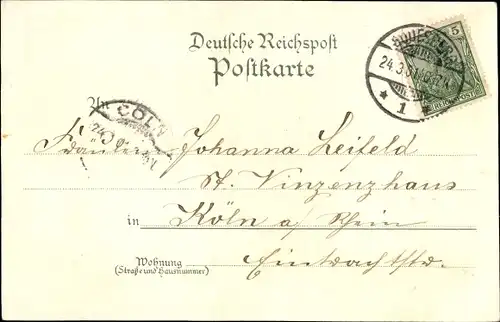 Deutsche Reichspost
Postkarte
5
REICHSPOST
24.3.
* 1
An
CÖLN
24.3
Fräulein Johanna Leifeld
St. Vinzenzhaus
in Köln a/Rhein
Eintrachtstr.
Wohnung
(Straße und Hausnummer)